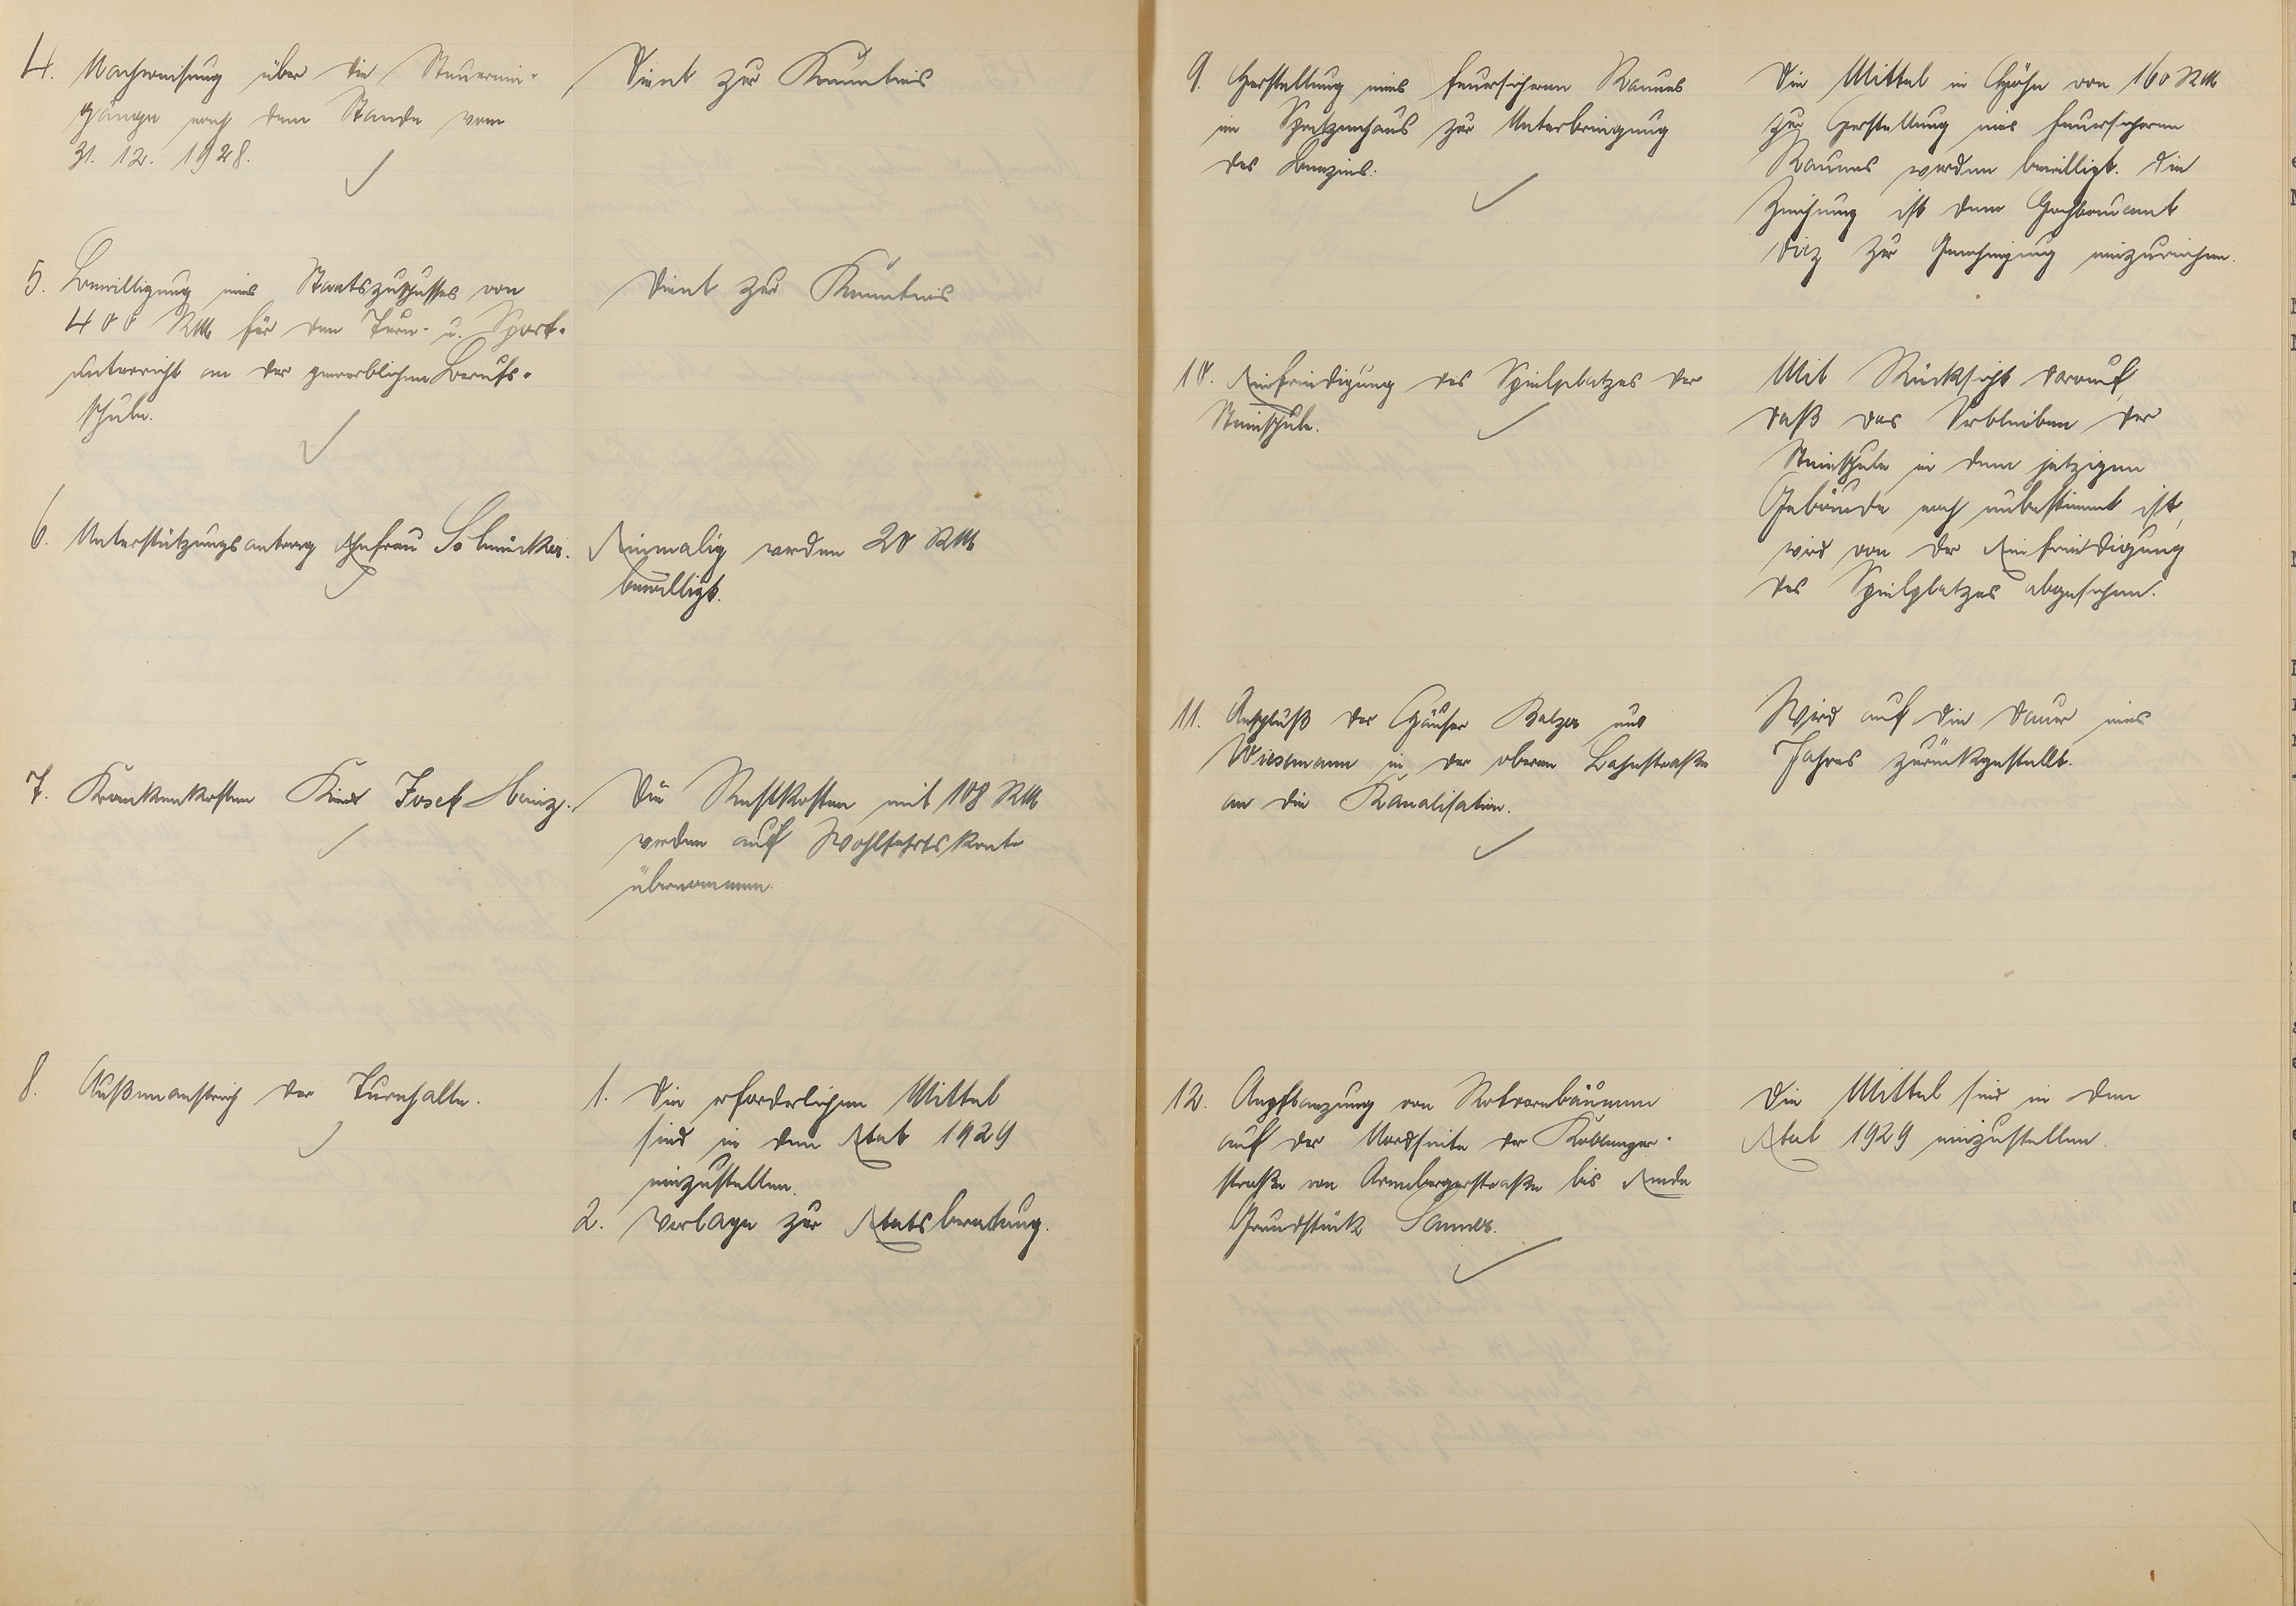 4. Nachweisung über die Steuerein-
gänge nach dem Stande vom
31. 12. 1928.
Dient zur Kenntnis
5. Bewilligung eines Staatszuschusses von
400 RM für den Turn- u. Sport-
unterricht an der gewerblichen Berufs-
schule.
Dient zur Kenntnis
6. Unterstützungsantrag Ehefrau
Einmalig werden 20 RM
bewilligt.
7. Krankenkosten Kind Josef Heinz.
Die Restkosten mit 108 RM
werden auf Wohlfahrtskonto
übernommen.
8. Außenanstrich der Turnhalle.
1. Die erforderlichen Mittel
sind in den Etat 1929
einzustellen.
2. Vorlage zur Etatsberatung.
9. Herstellung eines feuersicheren Raumes
im Spritzenhaus zur Unterbringung
des Benzins.
Die Mittel in Höhe von 160 RM
zur Herstellung eines feuersicheren
Raumes werden bewilligt. Die
Zeichnung ist dem Hochbauamt
Diez zur Genehmigung einzureichen.
10. Einfriedigung des Spielplatzes der
Steinschule.
Mit Rücksicht darauf,
daß das Verbleiben der
Steinschule in dem jetzigen
Gebäude noch unbestimmt ist,
wird von der Einfriedigung
des Spielplatzes abgesehen.
11. Anschluß der Häuser Balzer und
Wiesmann in der oberen Bahnstraße
an die Kanalisation.
Wird auf die Dauer eines
Jahres zurückgestellt.
12. Anpflanzung von Rotdornbäumen
auf der Nordseite der Koblenzer-
straße von Arenbergerstraße bis Ende
Grundstück
Die Mittel sind in den
Etat 1929 einzustellen.